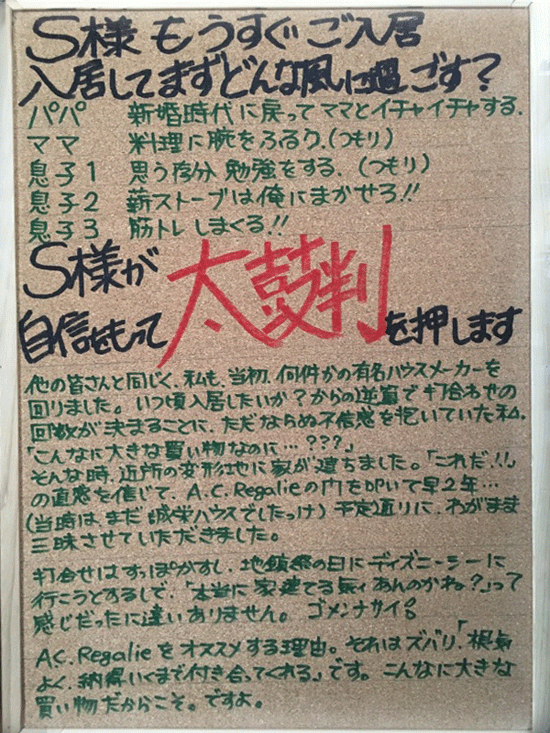 S様 もうすぐ ご入居
入居してまずどんな風に過ごす？
パパ 新婚時代に戻ってママとイチャイチャする.
ママ 料理に腕をふるう.(つもり)
息子1 思う存分 勉強をする. (つもり)
息子2 薪ストーブは俺にまかせろ!!
息子3 筋トレしまくる.!!
S様が 太鼓判
自信をもって を押します
他の皆さんと同じく、私も、当初、何件かの有名ハウスメーカーを
回りました。いつ頃入居したいか？からの逆算で打合わせの
回数が決まることに、ただならぬ不信感を抱いていた私。
「こんなに大きな買い物なのに…???」
そんな時、近所の変形地に家が建ちました。「これだ.!!」
の直感を信じて、A.C.Regalieの門を叩いて早2年…
(当時は、まだ誠栄ハウスでしたっけ) 予定通りに、わがまま
三昧させていただきました。
打合せはすっぽかすし、地鎮祭の日にディズニーシーに
行こうとするしで、「本当に家建てる気ィあんのかね。?」って
感じだったに違いありません。ゴメンナサイ!
A.C.Regalieをオススメする理由。それはズバリ、「根気
よく、納得いくまで付き合ってくれる」です。こんなに大きな
買い物だからこそ。ですよ。